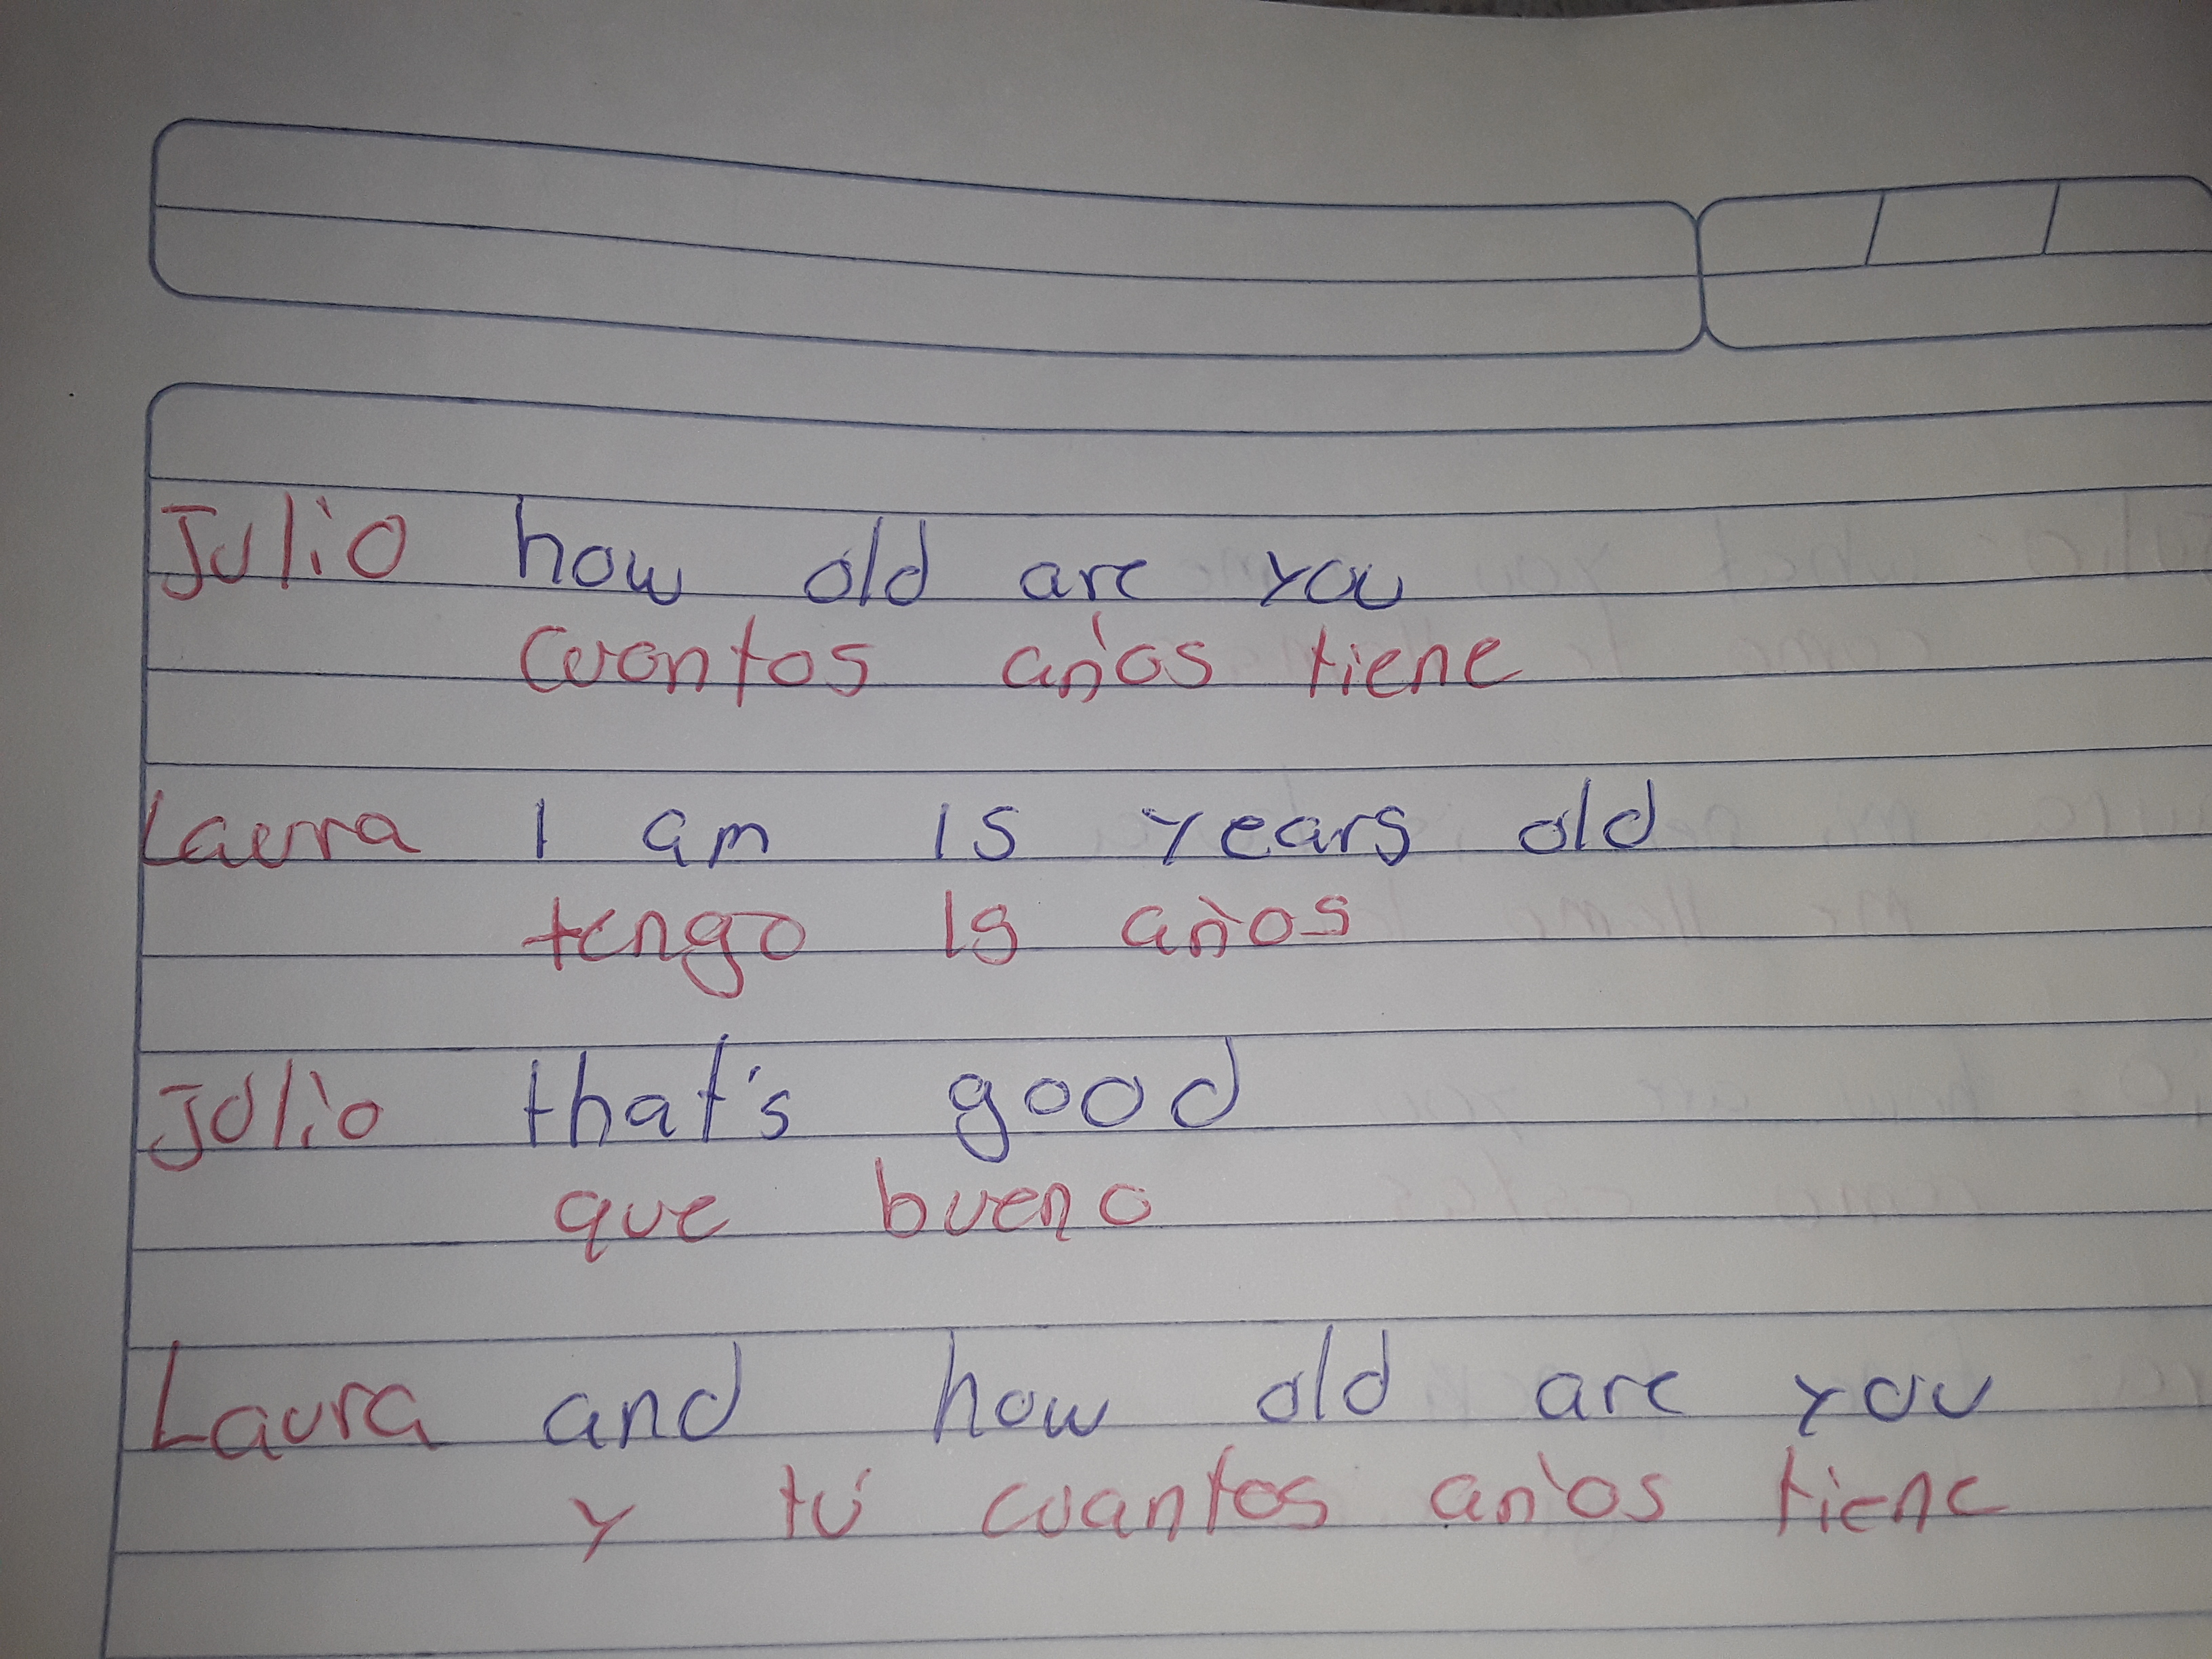 Julio how old are you
cuantos años tiene
Laura I am 15 years old
tengo 15 años
Julio that's good
que bueno
Laura and how old are you
y tú cuantos años tiene